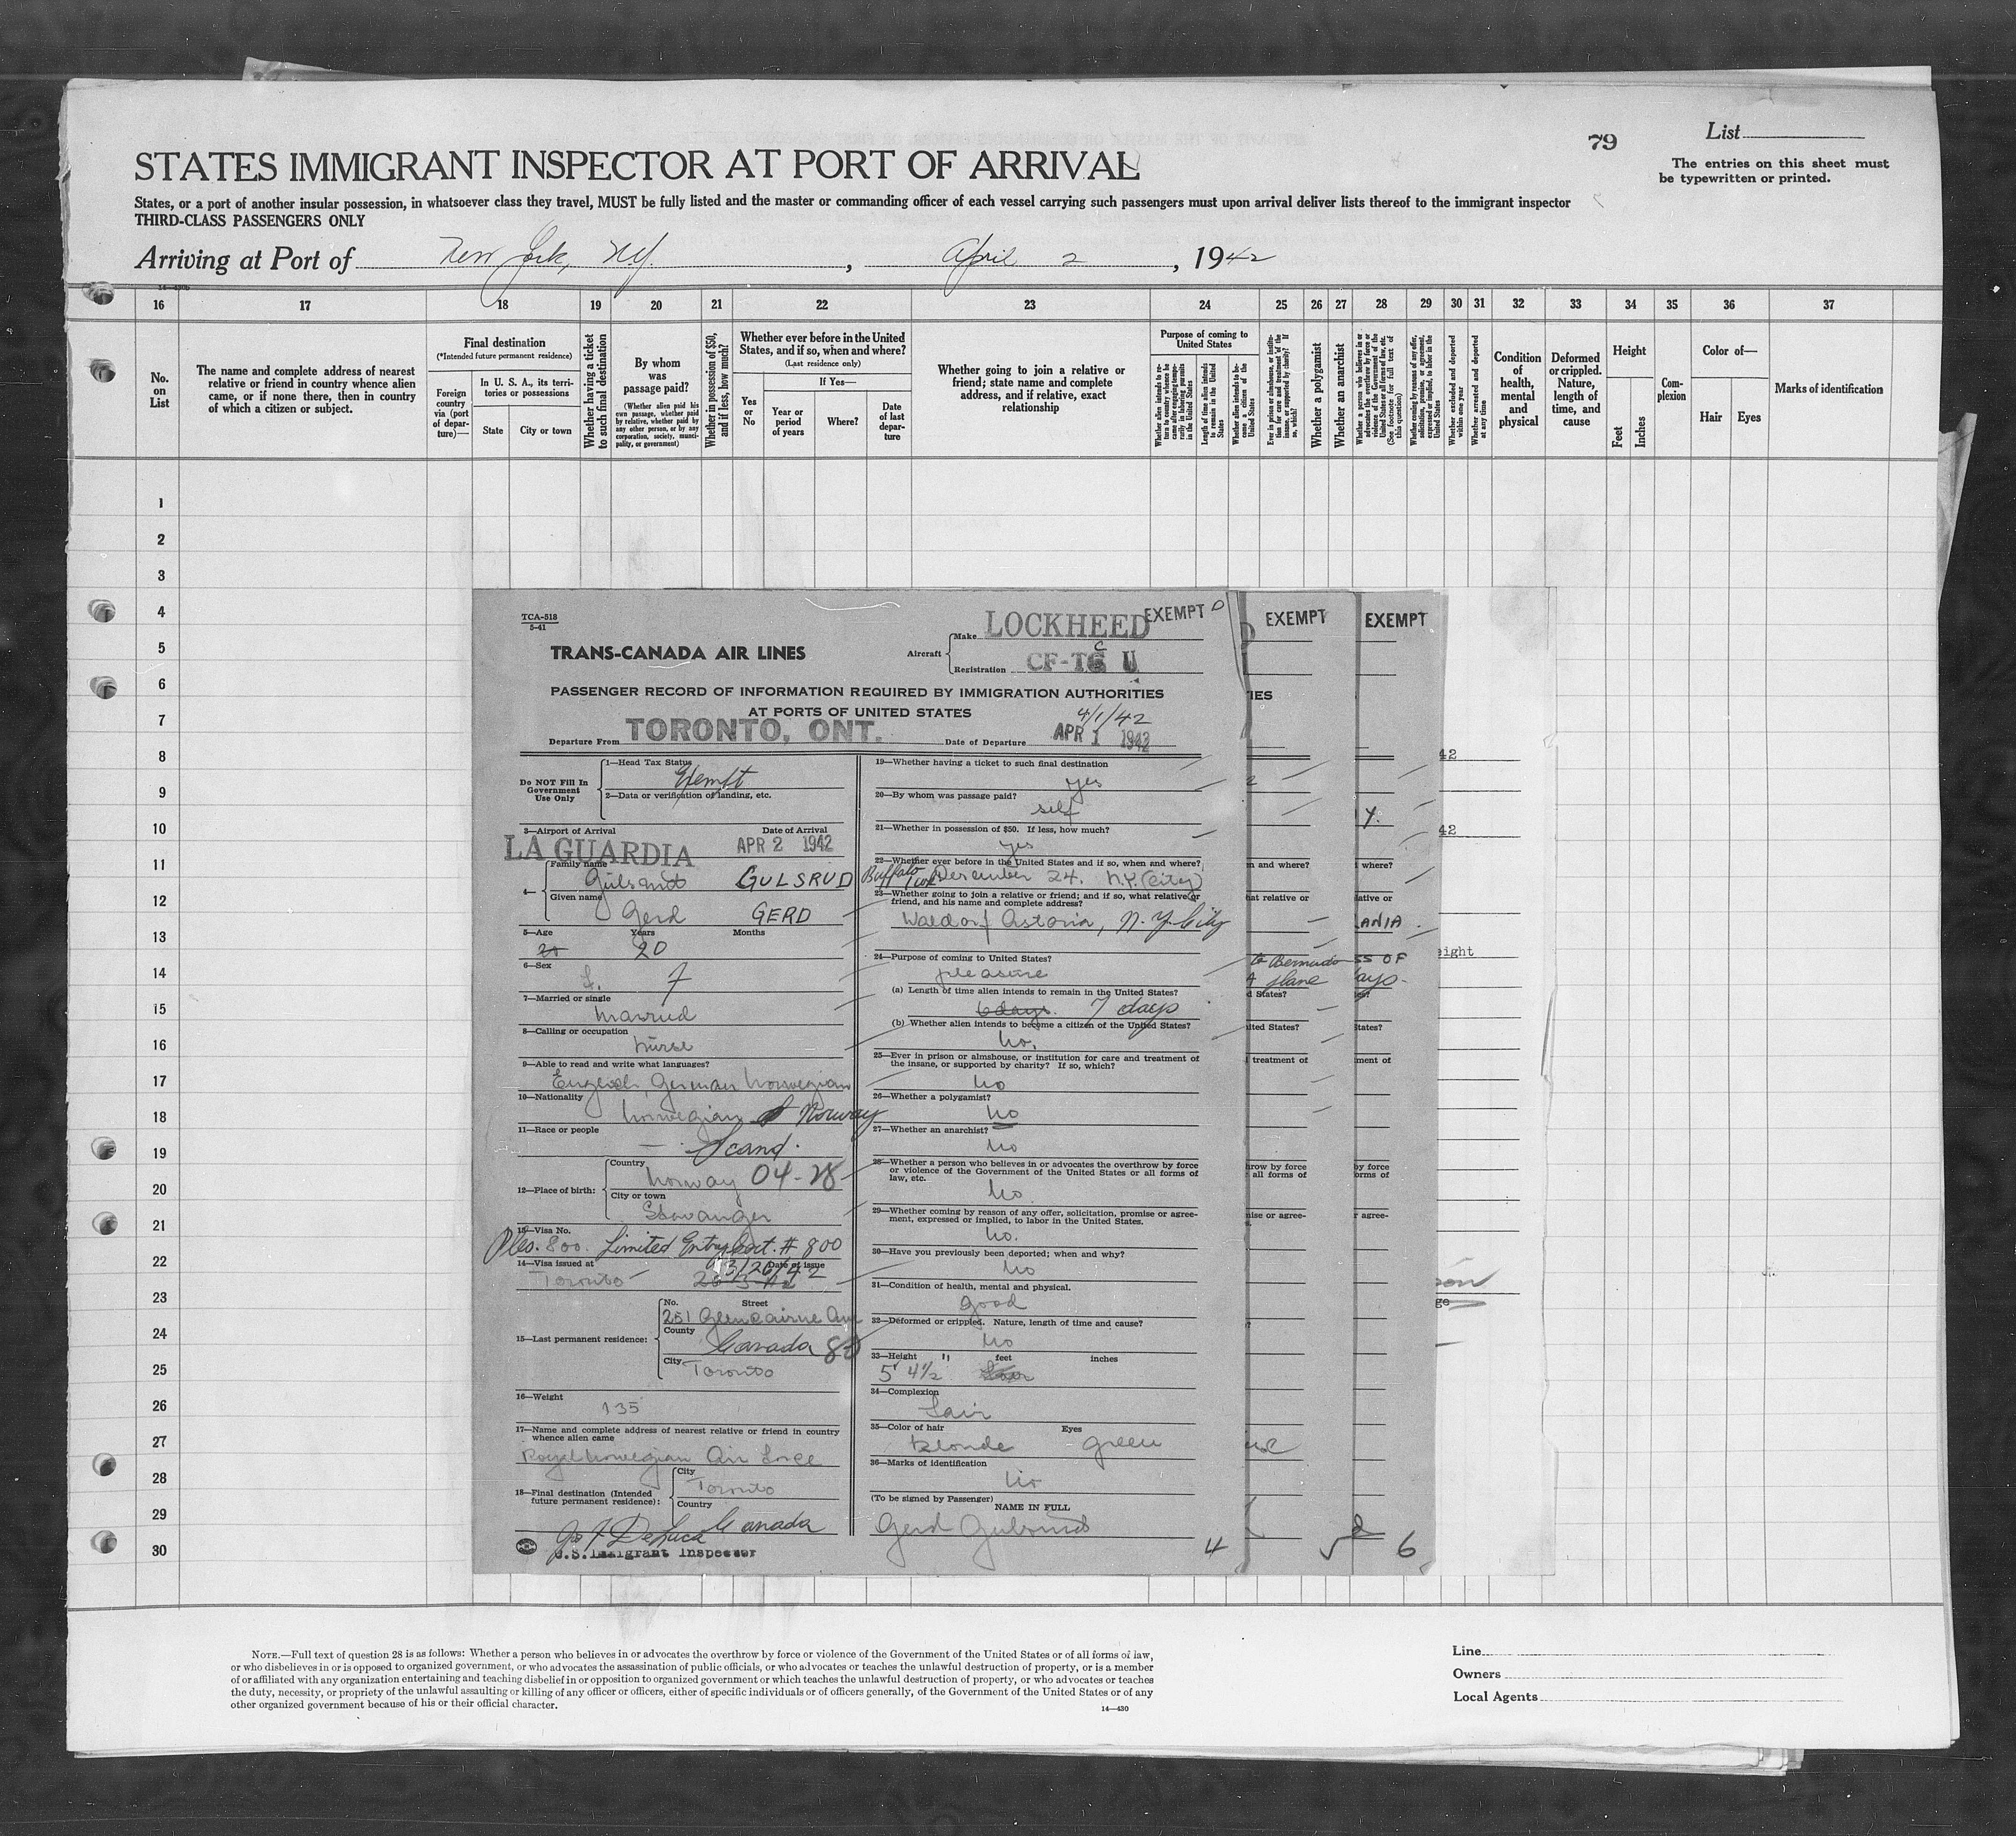 79
List
The entries on this sheet must
be typewritten or printed.
STATES IMMIGRANT INSPECTOR AT PORT OF ARRIVAL
States, or a port of another insular possession, in whatsoever class they travel, MUST be fully listed and the master or commanding officer of each vessel carrying such passengers must upon arrival deliver lists thereof to the immigrant inspector
THIRD-CLASS PASSENGERS ONLY
Arriving at Port of New York, N.Y., April 2, 1942
16 17 18 19 20 21 22 23 24 25 26 27 28 29 30 31 32 33 34 35 36 37
No. on List
The name and complete address of nearest relative or friend in country whence alien came, or if none there, then in country of which a citizen or subject.
Final destination
(*Intended future permanent residence)
Foreign country via (port of departure)—
In U. S. A., its territories or possessions
State
City or town
Whether having a ticket to such final destination
By whom was passage paid?
(Whether alien paid his own passage, whether paid by relative, whether paid by any other person, or by any corporation, society, municipality, or government)
Whether in possession of $50, and if less, how much?
Whether ever before in the United States, and if so, when and where?
(Last residence only)
Yes or No
If Yes—
Year or period of years
Where?
Date of last departure
Whether going to join a relative or friend; state name and complete address, and if relative, exact relationship
Purpose of coming to United States
Whether alien intends to return to country whence he came after engaging temporarily in laboring pursuits in the United States
Length of time alien intends to remain in the United States
Whether alien intends to become a citizen of the United States
Ever in prison or almshouse, or institution for care and treatment of the insane, or supported by charity? If so, which?
Whether a polygamist
Whether an anarchist
Whether a person who believes in or advocates the overthrow by force or violence of the Government of the United States or all forms of law, etc. (See footnote for full text of this question)
Whether coming by reason of any offer, solicitation, promise, or agreement, expressed or implied, to labor in the United States
Whether excluded and deported within one year
Whether arrested and deported at any time
Condition of health, mental and physical
Deformed or crippled. Nature, length of time, and cause
Height
Feet
Inches
Complexion
Color of—
Hair
Eyes
Marks of identification
1
2
3
4
5
6
7
8
9
10
11
12
13
14
15
16
17
18
19
20
21
22
23
24
25
26
27
28
29
30
TCA-518
5-41
TRANS-CANADA AIR LINES
Aircraft
Make LOCKHEED
Registration CF-TC U
EXEMPT
EXEMPT
EXEMPT
PASSENGER RECORD OF INFORMATION REQUIRED BY IMMIGRATION AUTHORITIES
AT PORTS OF UNITED STATES
4/1/42
Departure From TORONTO, ONT. Date of Departure APR 1 1942
Do NOT Fill In Government Use Only
1—Head Tax Status Exempt
2—Data or verification of landing, etc.
3—Airport of Arrival Date of Arrival
LA GUARDIA APR 2 1942
4— Family name
Gulsrud GULSRUD
Given name
Gerd GERD
5—Age Years Months
20 20
6—Sex
f. F
7—Married or single
married
8—Calling or occupation
nurse
9—Able to read and write what languages?
English, German Norwegian
10—Nationality
Norwegian Norway
11—Race or people
Scand.
12—Place of birth:
Country
Norway 04-28
City or town
Stavanger
13—Visa No.
800. Limited Entry Cert. # 800
14—Visa issued at Date of issue
Toronto 3/26/42
26-3-42
15—Last permanent residence:
No. Street
251 Glencairne Ave
County
Canada 80
City
Toronto
16—Weight
135
17—Name and complete address of nearest relative or friend in country whence alien came
Royal Norwegian Air Force
18—Final destination (Intended future permanent residence):
City
Toronto
Country
Canada
U.S. Immigrant Inspector
19—Whether having a ticket to such final destination
yes
20—By whom was passage paid?
self
21—Whether in possession of $50. If less, how much?
yes
22—Whether ever before in the United States and if so, when and where?
Buffalo Desember 24. N.Y. (City)
23—Whether going to join a relative or friend; and if so, what relative or friend, and his name and complete address?
Waldorf Astoria, N.Y. City
24—Purpose of coming to United States?
pleasure
(a) Length of time alien intends to remain in the United States?
6 days. 7 days
(b) Whether alien intends to become a citizen of the United States?
no.
25—Ever in prison or almshouse, or institution for care and treatment of the insane, or supported by charity? If so, which?
no
26—Whether a polygamist?
no
27—Whether an anarchist?
no
28—Whether a person who believes in or advocates the overthrow by force or violence of the Government of the United States or all forms of law, etc.
no.
29—Whether coming by reason of any offer, solicitation, promise or agreement, expressed or implied, to labor in the United States.
no.
30—Have you previously been deported; when and why?
no
31—Condition of health, mental and physical.
good
32—Deformed or crippled. Nature, length of time and cause?
no
33—Height feet inches
5' 4½"
34—Complexion
fair
35—Color of hair Eyes
blonde green
36—Marks of identification
no
(To be signed by Passenger)
NAME IN FULL
Gerd Gulsrud
4
5
6
NOTE.—Full text of question 28 is as follows: Whether a person who believes in or advocates the overthrow by force or violence of the Government of the United States or of all forms of law,
or who disbelieves in or is opposed to organized government, or who advocates the assassination of public officials, or who advocates or teaches the unlawful destruction of property, or is a member
of or affiliated with any organization entertaining and teaching disbelief in or opposition to organized government or which teaches the unlawful destruction of property, or who advocates or teaches
the duty, necessity, or propriety of the unlawful assaulting or killing of any officer or officers, either of specific individuals or of officers generally, of the Government of the United States or of any
other organized government because of his or their official character.
14—430
Line
Owners
Local Agents